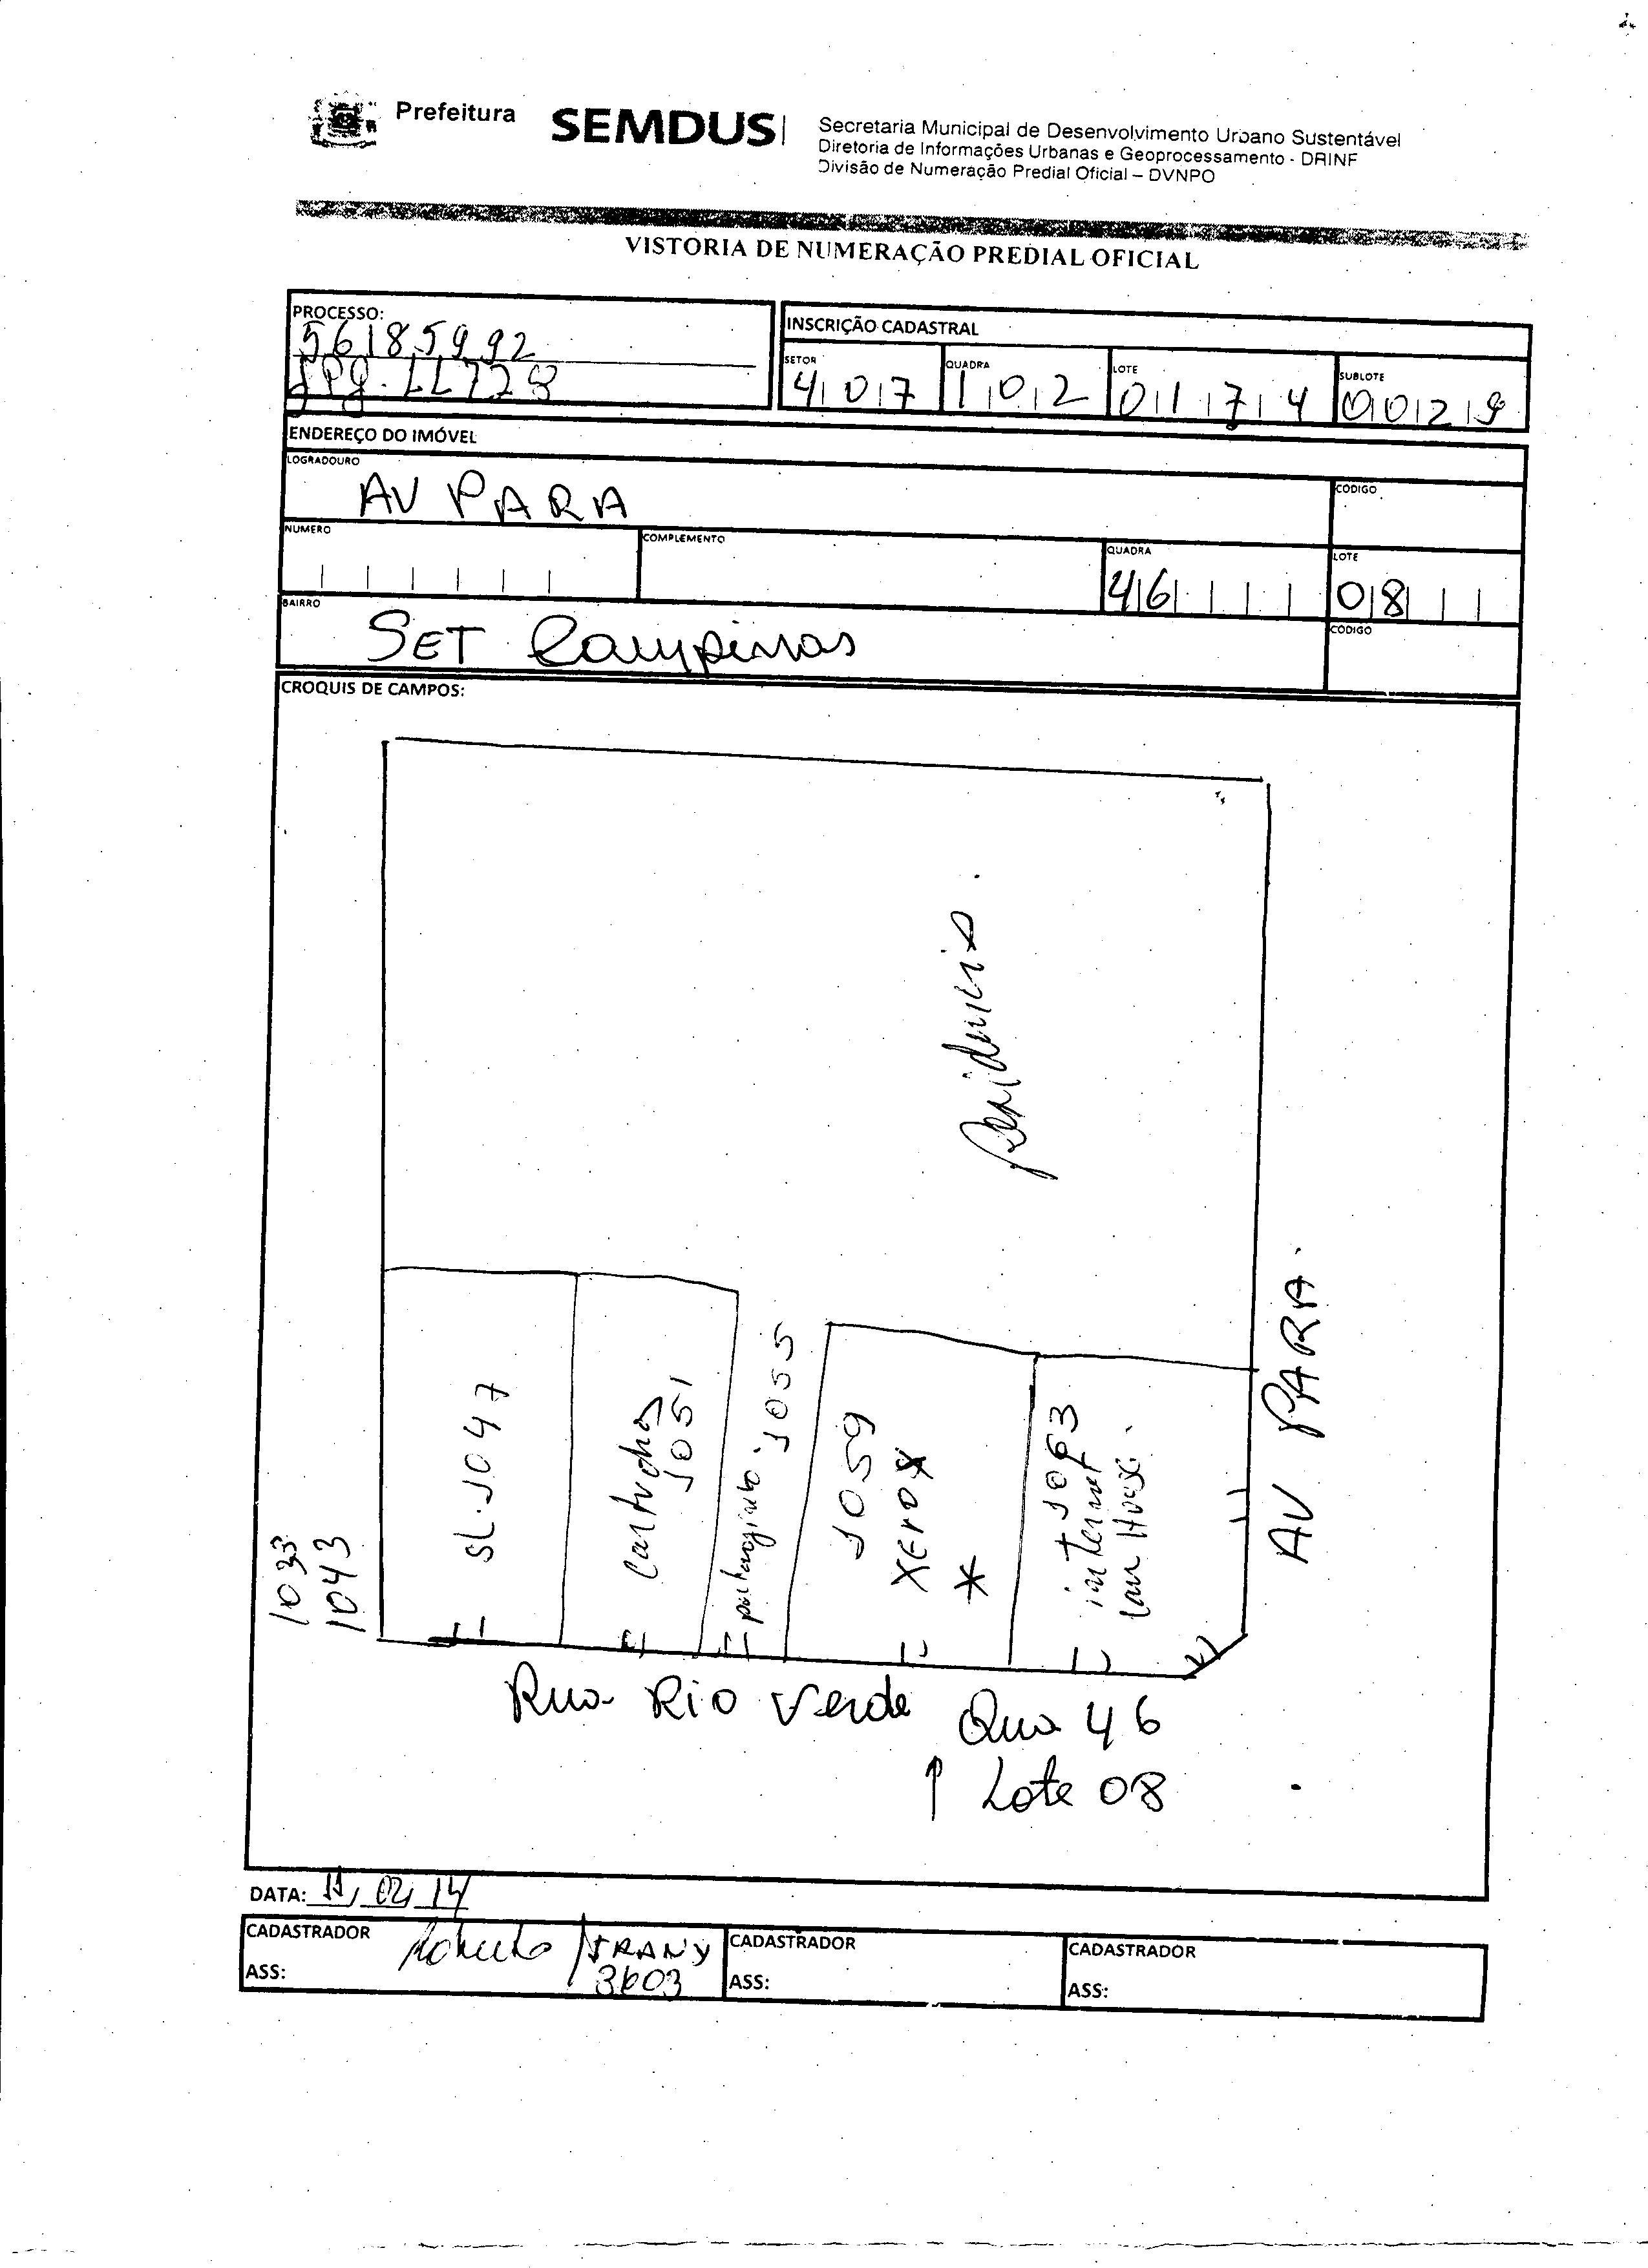 Prefeitura
SEMDUS
Secretaria Municipal de Desenvolvimento Urbano Sustentável
Diretoria de Informações Urbanas e Geoprocessamento - DRINF
Divisão de Numeração Predial Oficial – DVNPO
VISTORIA DE NUMERAÇÃO PREDIAL OFICIAL
PROCESSO:
56185992
INSCRIÇÃO CADASTRAL
SETOR 407
QUADRA 102
LOTE 0174
SUBLOTE 0029
ENDEREÇO DO IMÓVEL
LOGRADOURO
AV PARA
CODIGO
NUMERO
COMPLEMENTO
QUADRA
46
LOTE
08
BAIRRO
SET Campinas
CODIGO
CROQUIS DE CAMPOS:
Residencia
1033
1043
SL. 1047
Cartuchos
1051
1055
1059
XEROX
*
1063
internet
Lan House.
AV PARA
Rua Rio Verde
Qua 46
Lote 08
DATA: 11/02/14
CADASTRADOR
ASS:
Roberto / IRANY
3603
CADASTRADOR
ASS:
CADASTRADOR
ASS: